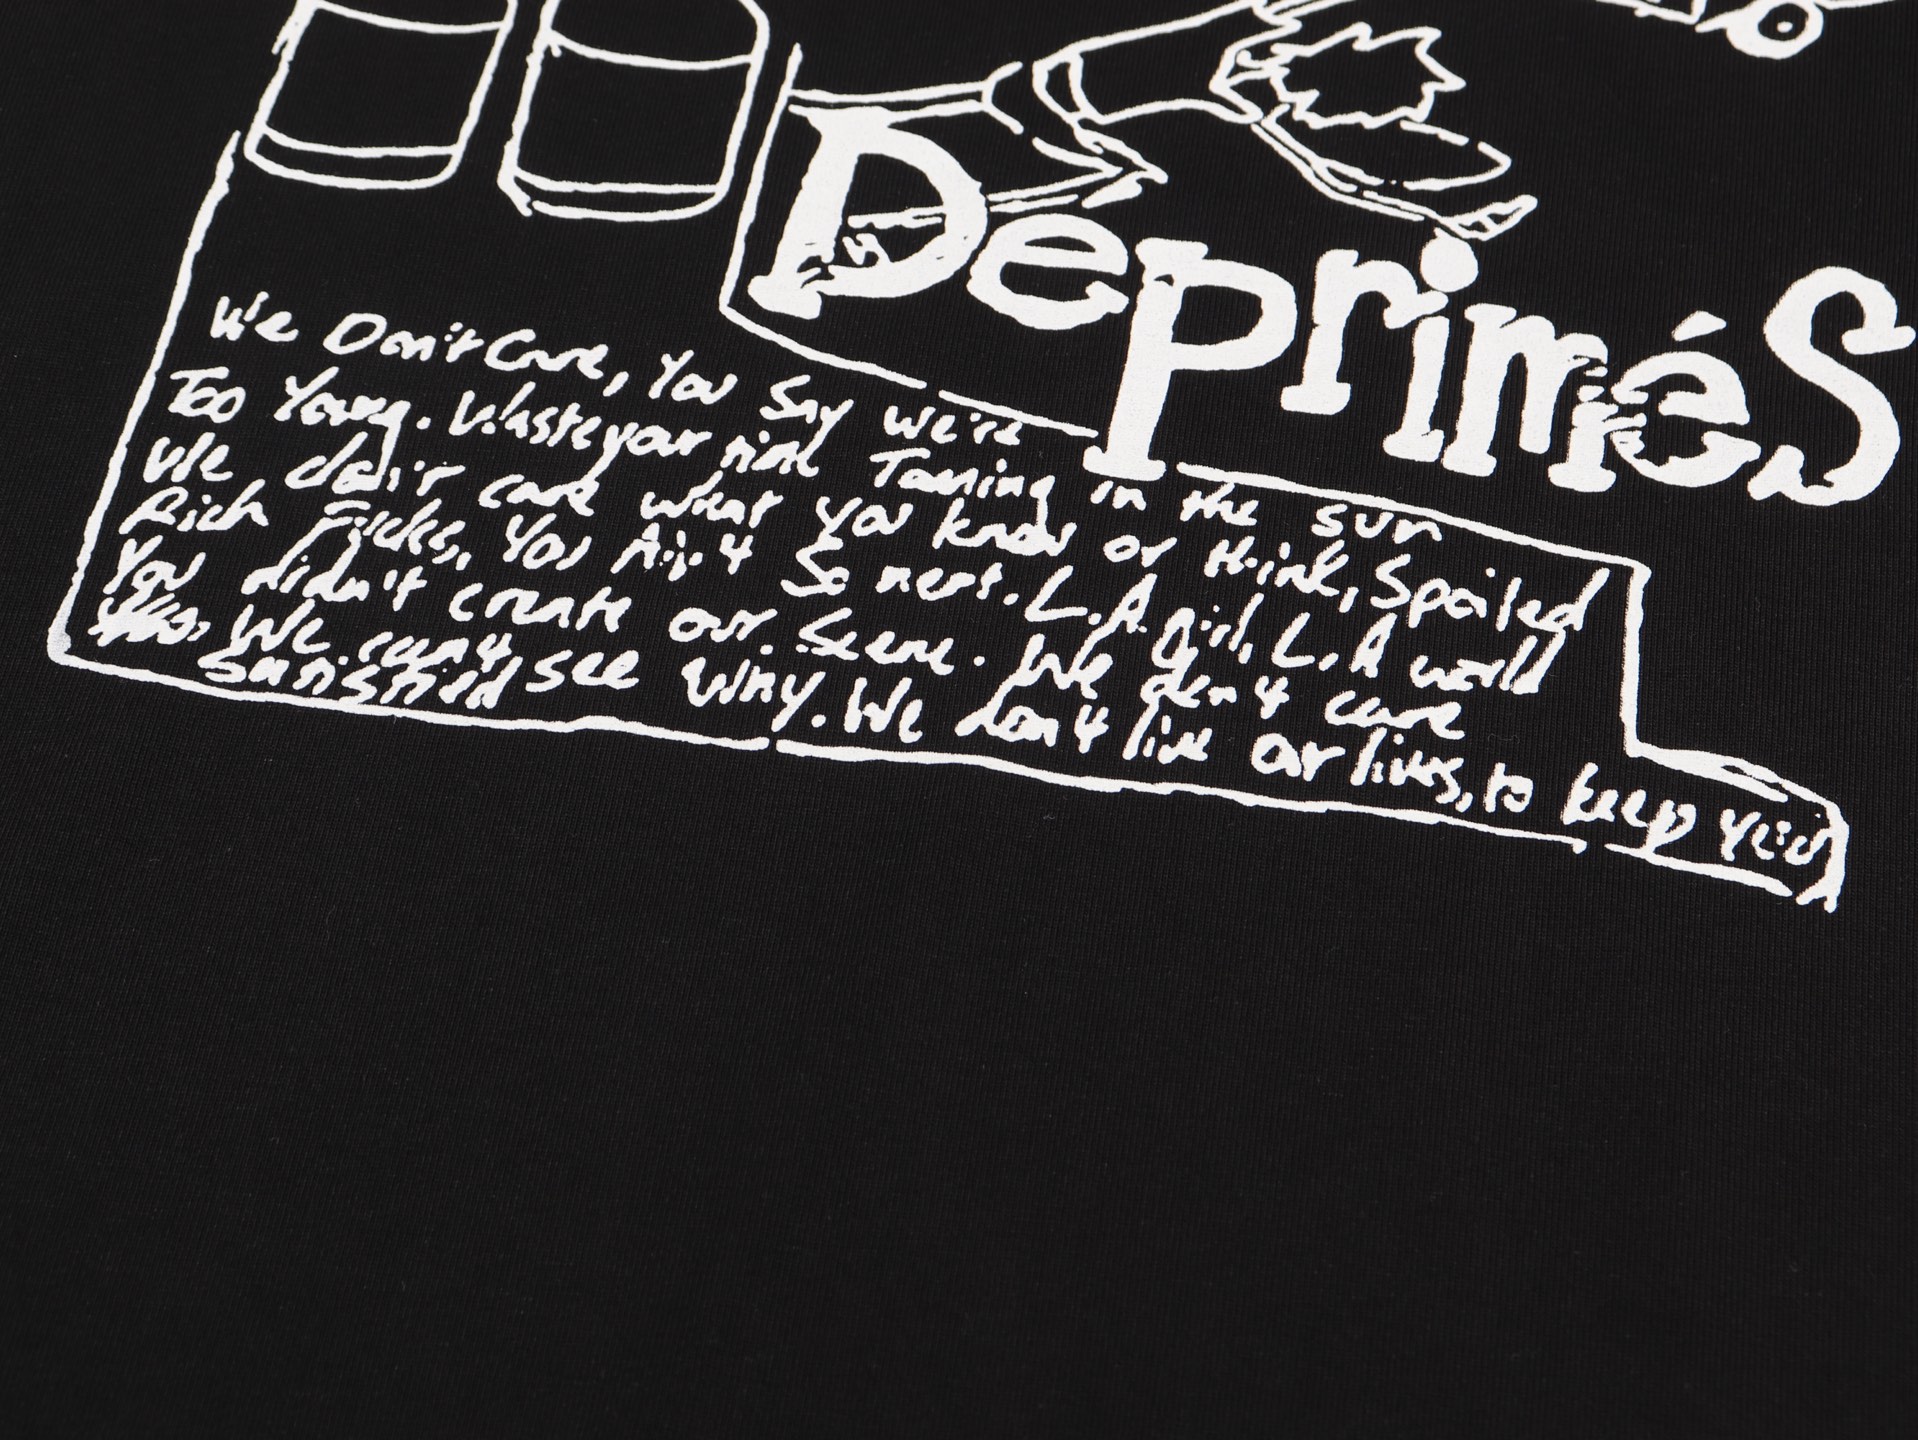 Deprimés
We Don't Care, You Say we're
Too Young. Waste your mind Tanning in the sun
We don't care what you know or think, Spoiled
Rich Fucks, You Ain't So neat. L.A. girl, L.A world
You didn't create our Scene. We don't care
We can't see why. We don't live our lives, to keep you
satisfied